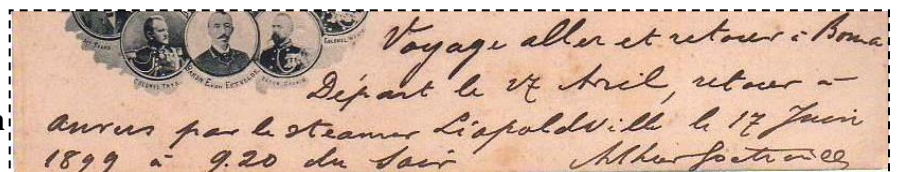 COLONEL THYS
BARON EDM. EETVELDE
Voyage aller et retour à Boma
Départ le 27 Avril, retour à
anvers par le steamer Léopoldville le 17 Juin
1899 à 9.20 du Soir